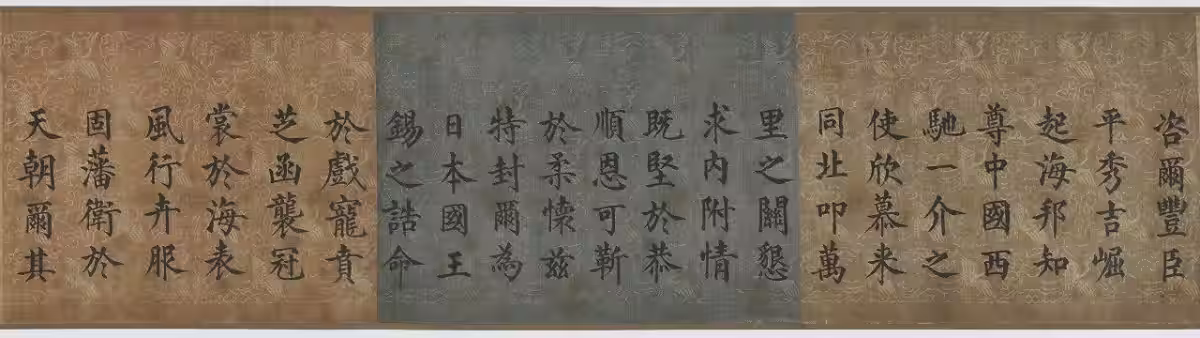 咨爾豐臣
平秀吉崛
起海邦知
尊中國西
馳一介之
使欣慕来
同北叩萬
里之關懇
求內附情
既堅於恭
順恩可靳
於柔懷茲
特封爾為
日本國王
錫之誥命
於戲寵賁
芝函襲冠
裳於海表
風行卉服
固藩衛於
天朝爾其